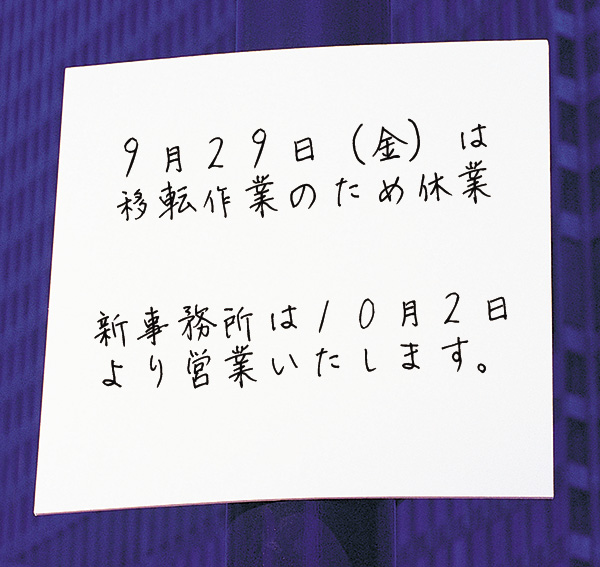 9月29日(金)は
移転作業のため休業
新事務所は10月2日
より営業いたします。